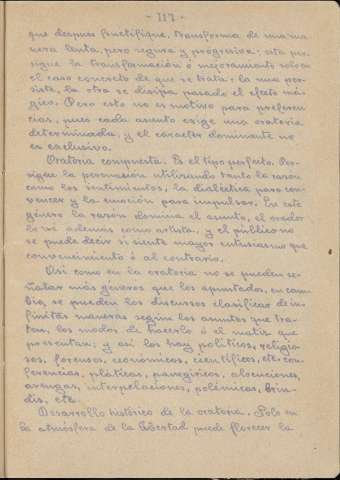 - 117 -
que despues fructifique, transforma de una ma-
nera lenta, pero segura y progresiva: esta per-
sigue la transformación ó mejoramiento sobre
el caso concreto de que se trata; la una per-
siste, la otra se disipa pasado el efecto má-
gico. Pero esto no es motivo para preferen-
cias, pues cada asunto exige una oratoria
determinada, y el caracter dominante no
es exclusivo.
Oratoria compuesta. Es el tipo perfecto. Per-
sigue la persuasión utilizando tanto la razón
como los sentimientos, la dialéctica para con-
vencer y la emoción para impulsar. En este
género la razón domina el asunto, el orador
lo ve además como artista, y el público no
se puede decir si siente mayor entusiasmo que
convencimiento ó al contrario.
Asi como en la oratoria no se pueden se-
ñalar más géneros que los apuntados, en cam-
bio, se pueden los discursos clasificar de in-
finitas maneras según los asuntos que tra-
tan, los modos de hacerlo ó el matiz que
presentan; y asi los hay políticos, religio-
sos, forenses, económicos, científicos, etc. con-
ferencias, pláticas, panegíricos, alocuciones,
arengas, interpelaciones, polémicas, brin-
dis, etc.
Desarrollo histórico de la oratoria. Solo en
la atmósfera de la libertad puede florecer la